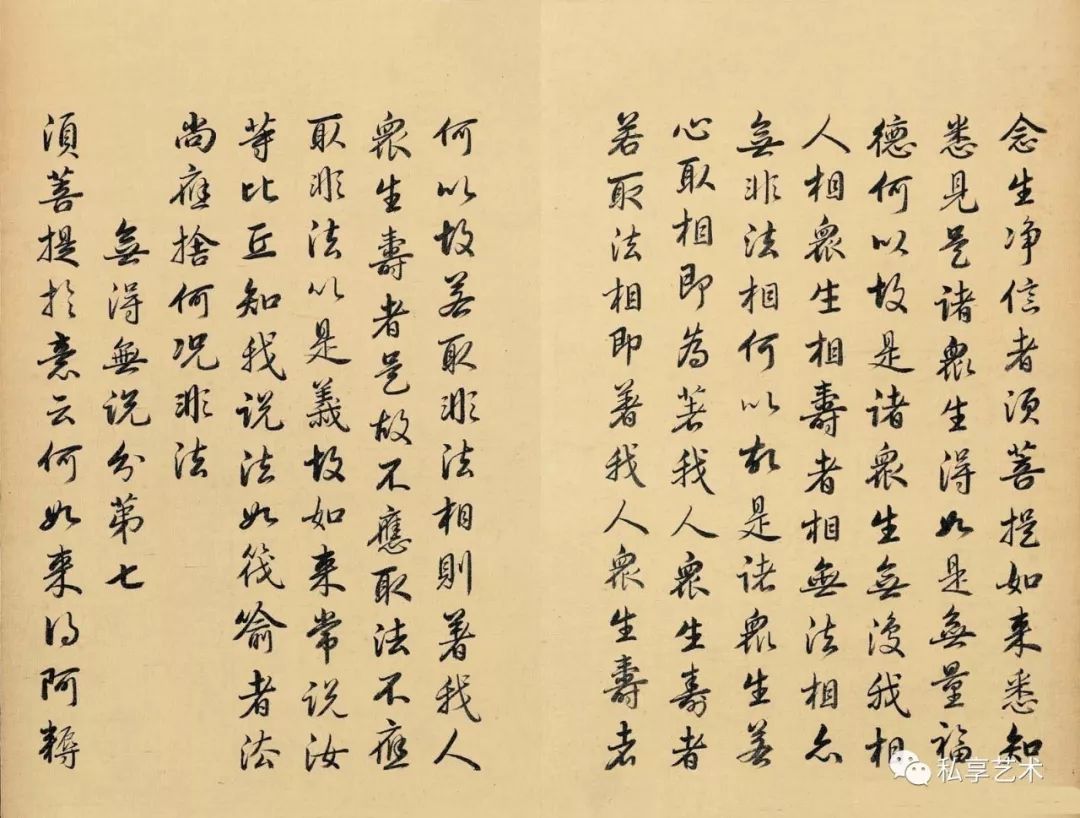 念生净信者须菩提如来悉知
悉見是诸衆生得如是無量福
德何以故是诸衆生無復我相
人相衆生相壽者相無法相亦
無非法相何以故是诸衆生若
心取相即為著我人衆生壽者
若取法相即著我人衆生壽者
何以故若取非法相則著我人
衆生壽者是故不應取法不應
取非法以是義故如来常说汝
等比丘知我说法如筏喻者法
尚應捨何况非法
無得無说分第七
须菩提於意云何如来得阿耨
私享艺术